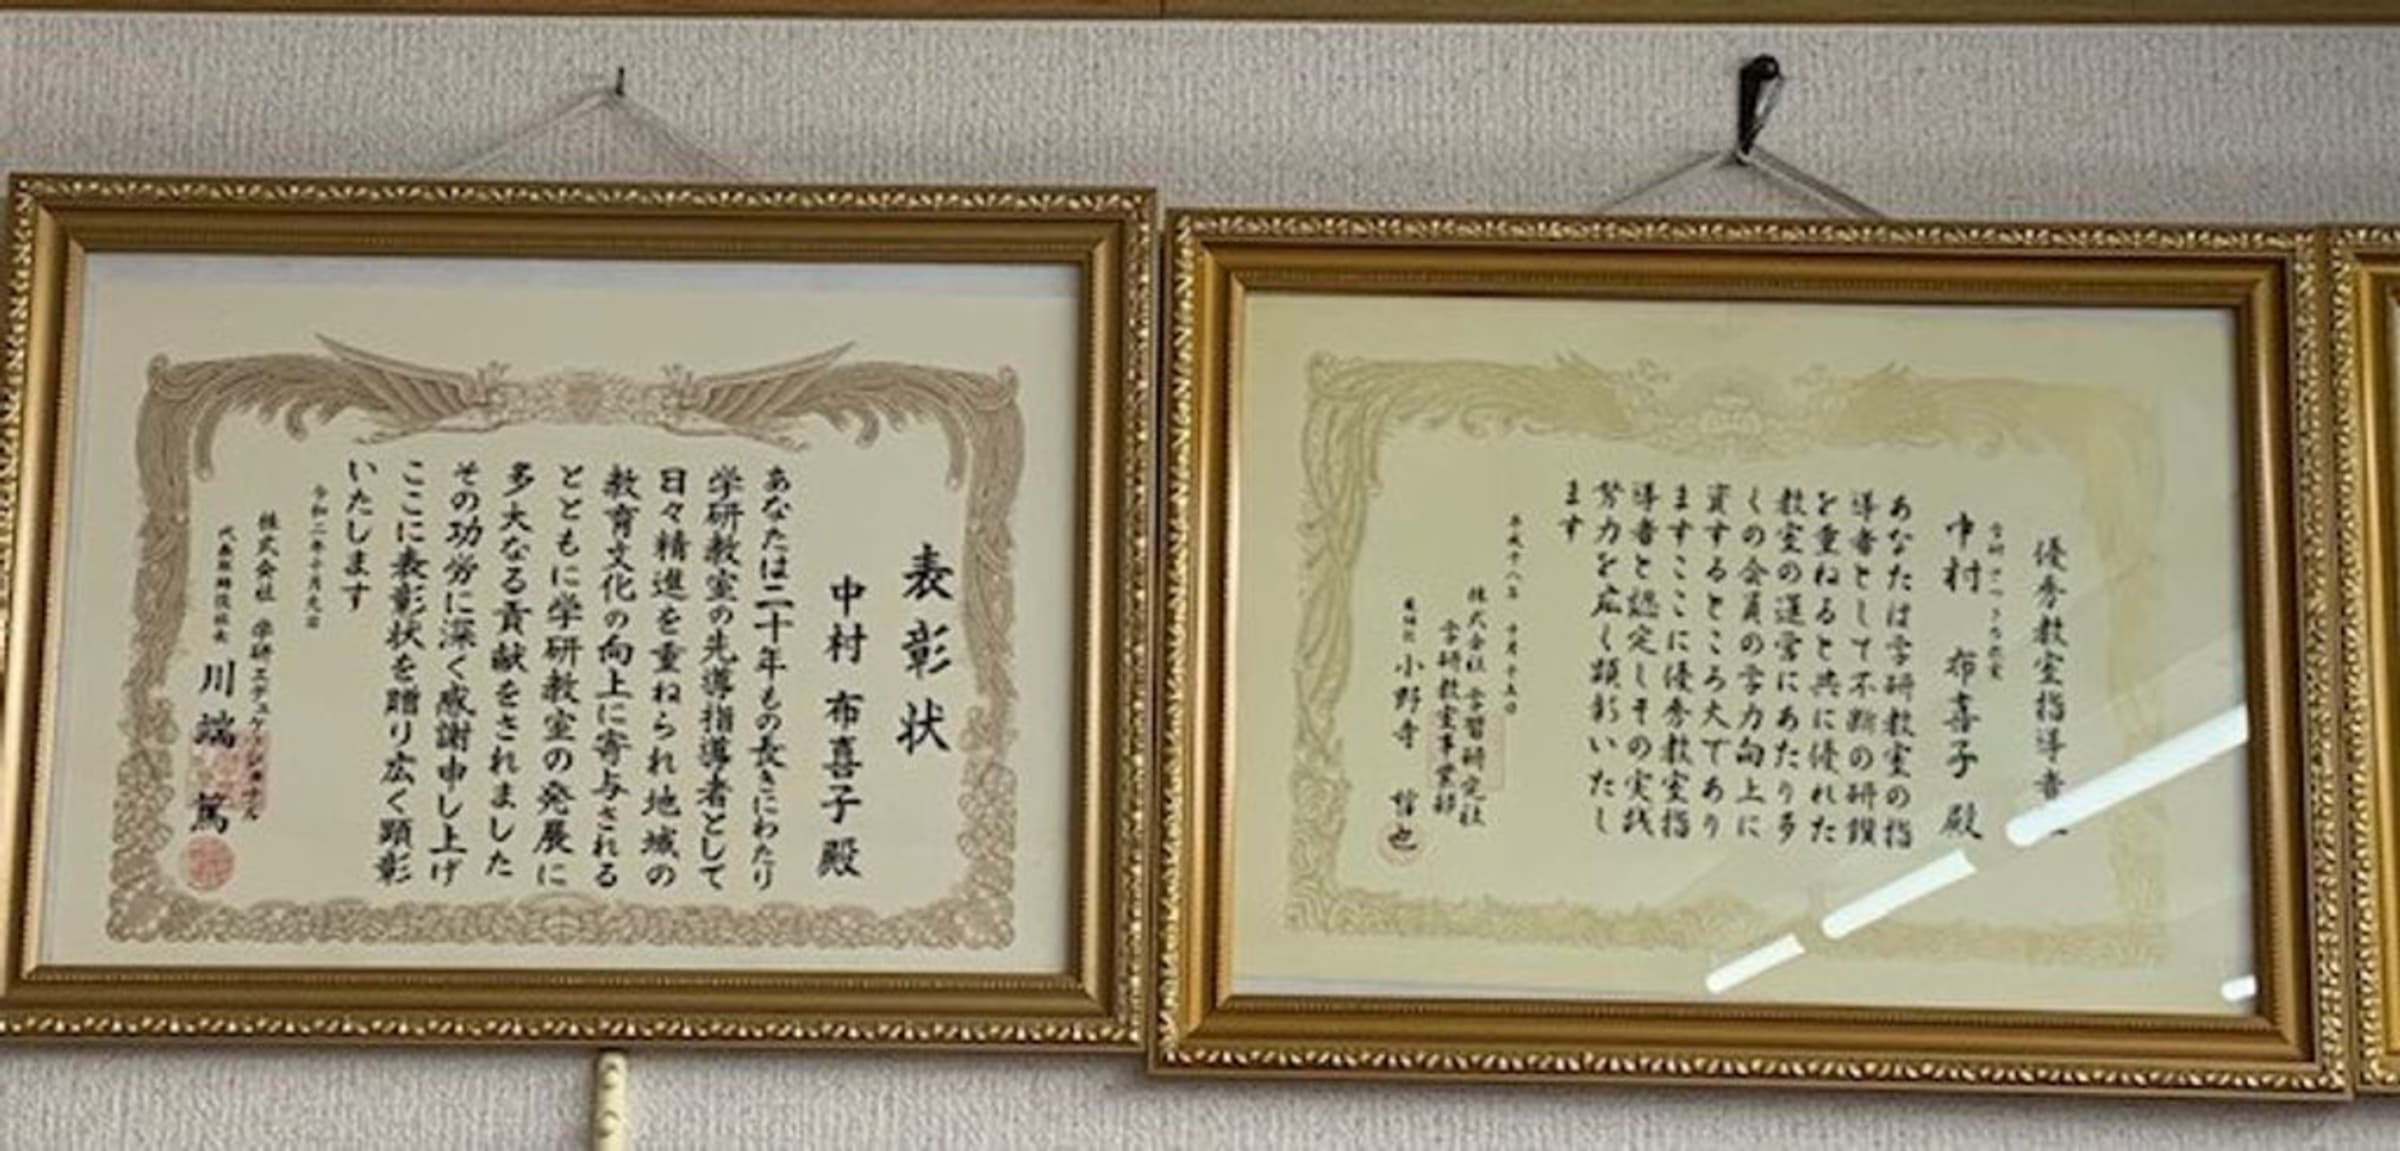 表彰状
中村 布喜子 殿
あなたは二十年もの長きにわたり
学研教室の先導指導者として
日々精進を重ねられ地域の
教育文化の向上に寄与される
とともに学研教室の発展に
多大なる貢献をされました
その功労に深く感謝申し上げ
ここに表彰状を贈り広く顕彰
いたします
令和二年十月九日
株式会社 学研エデュケーショナル
代表取締役社長 川端 篤
優秀教室指導者
中村 布喜子 殿
あなたは学研教室の指
導者として不断の研鑚
を重ねると共に優れた
教室の運営にあたり多
くの会員の学力向上に
資するところ大であり
ますここに優秀教室指
導者と認定しその実践
努力を広く顕彰いたし
ます
平成十八年 十月十五日
株式会社 学習研究社
学研教室事業部
小野寺 哲也